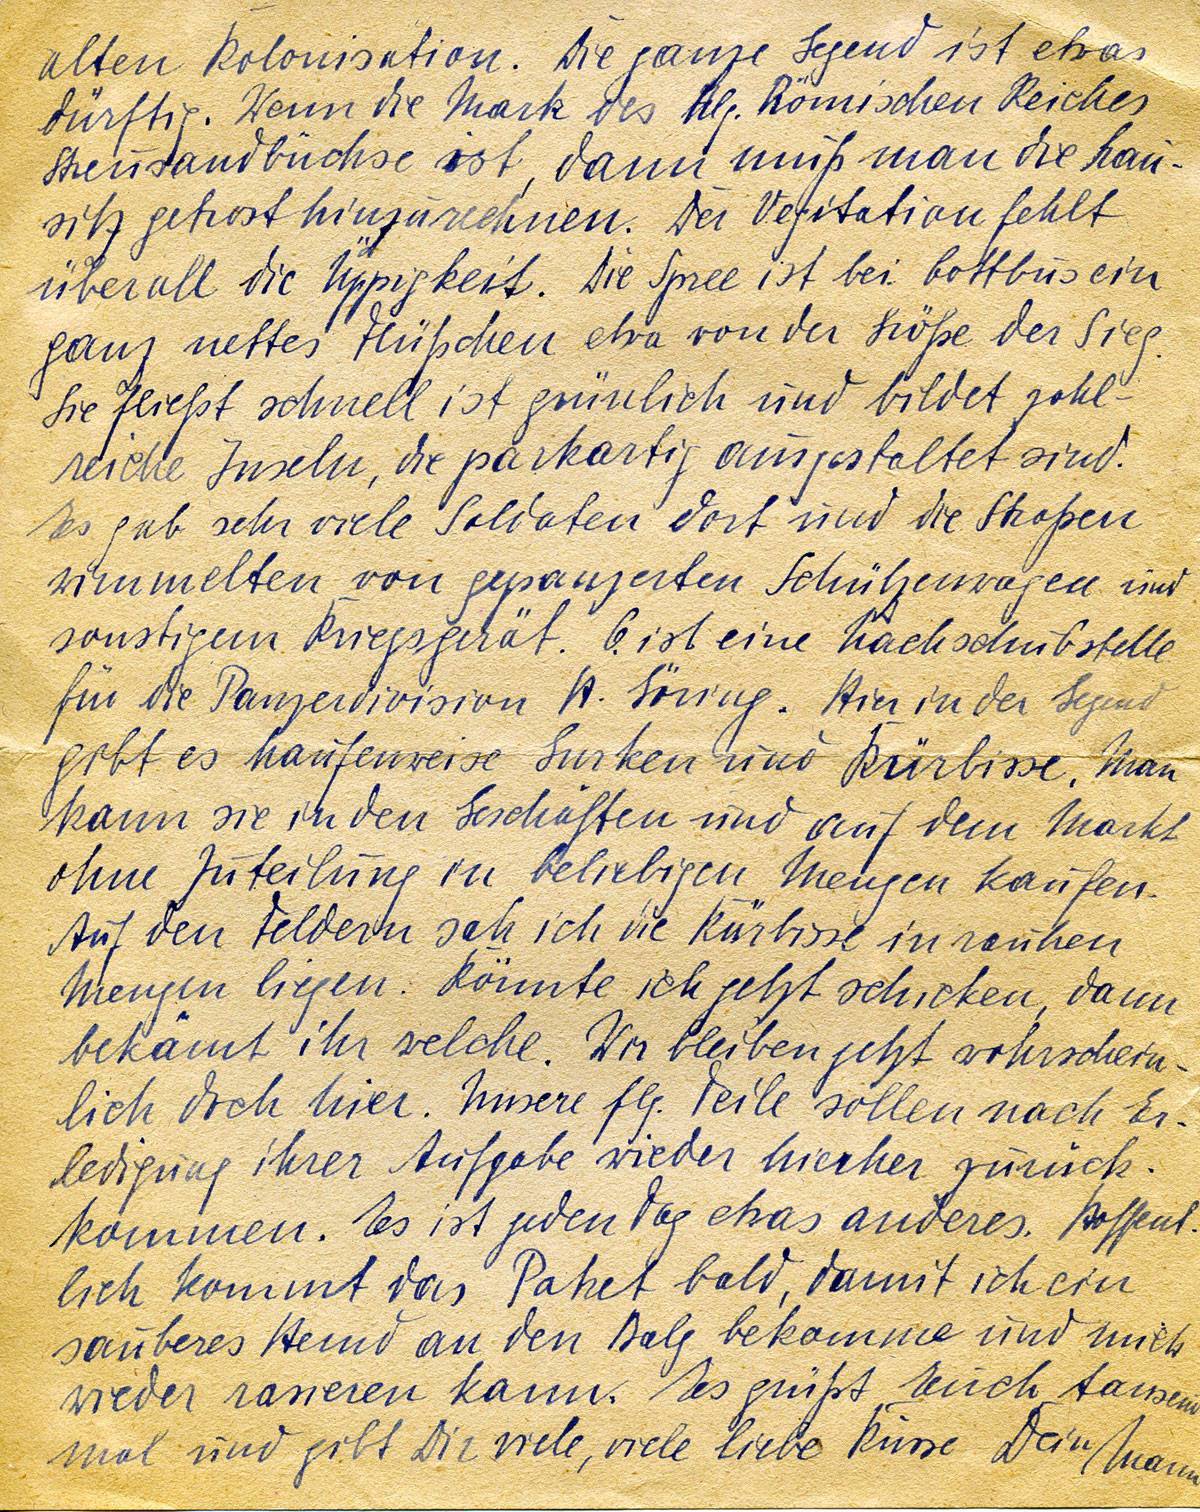 alten Kolonisation. Die ganze Gegend ist etwas
dürftig. Wenn die Mark des hlg. Römischen Reiches
Streusandbüchse ist, dann muß man die Lau-
sitz getrost hinzurechnen. Der Vegitation fehlt
überall die Üppigkeit. Die Spree ist bei Cottbus ein
ganz nettes Flüßchen etwa von der Größe der Sieg.
Sie fließt schnell ist grünlich und bildet zahl-
reiche Inseln, die parkartig ausgestaltet sind.
Es gab sehr viele Soldaten dort und die Straßen
wimmelten von gepanzerten Schützenwagen und
sonstigem Kriegsgerät. C. ist eine Nachschubstelle
für die Panzerdivision H. Göring. Hier in der Gegend
gibt es haufenweise Gurken und Kürbisse. Man
kann sie in den Geschäften und auf dem Markt
ohne Zuteilung in beliebigen Mengen kaufen.
Auf den Feldern sah ich die Kürbisse in rauhen
Mengen liegen. Könnte ich jetzt schicken, dann
bekämt ihr welche. Wir bleiben jetzt wahrschein-
lich doch hier. Unsere flg. Teile sollen nach Er-
ledigung ihrer Aufgabe wieder hierher zurück-
kommen. Es ist jeden Tag etwas anderes. Hoffent-
lich kommt das Paket bald, damit ich ein
sauberes Hemd an den Balg bekomme und mich
wieder rasieren kann. Es grüßt Euch tausend
mal und gibt Dir viele, viele liebe Küsse Dein Mann